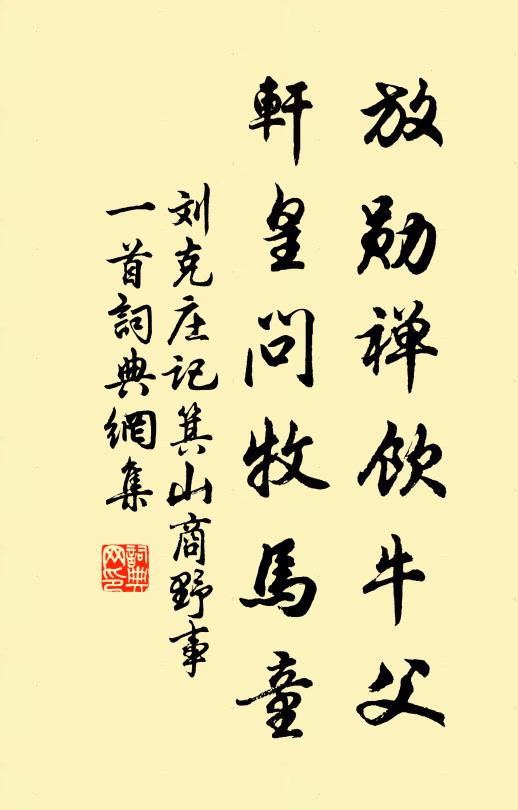 放勋禅饮牛父
軒皇問牧馬童
刘克庄记箕山商野事
一首詞典網集
詞典
网印